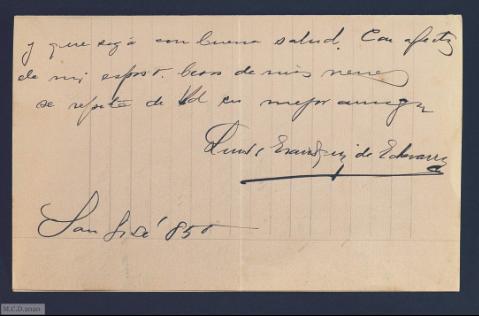 y que siga con buena salud. Con afectos
de mi esposo. besos de mis nenes
se repite de Vd su mejor amiga
de Echevarria
San José 850
M.C.D.